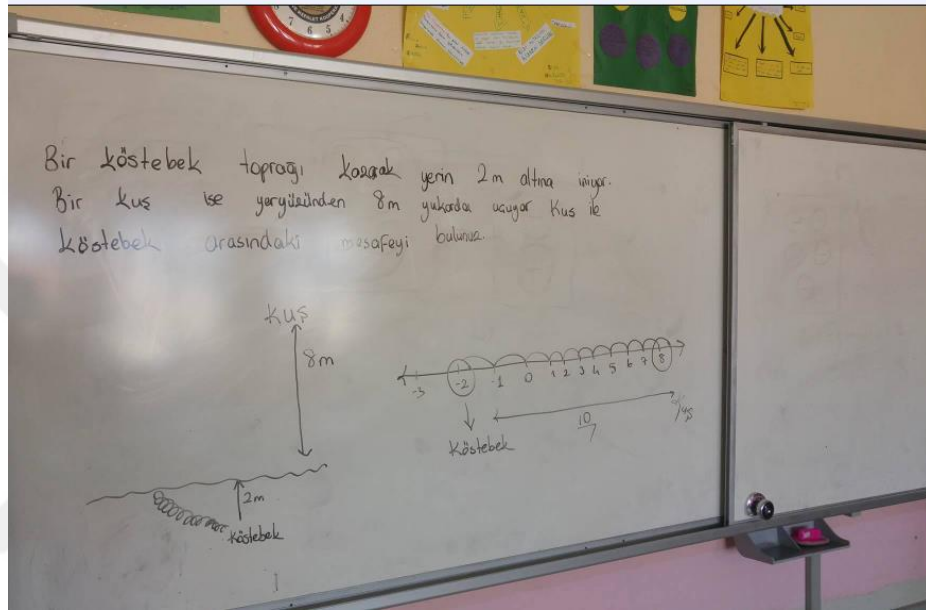 Bir köstebek toprağı kazarak yerin 2m altına iniyor.
Bir kuş ise yeryüzünden 8m yukarda uçuyor Kus ile
köstebek arasındaki mesafeyi bulunuz.
KUŞ
8m
2m
köstebek
-3 -2 -1 0 1 2 3 4 5 6 7 8
10
Köstebek
kuş
7 6 5